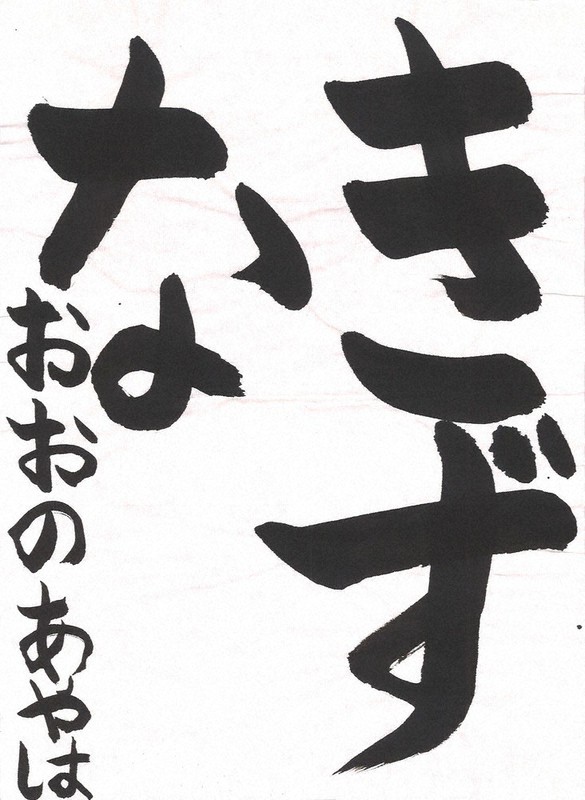 きず
な
おおのあやは